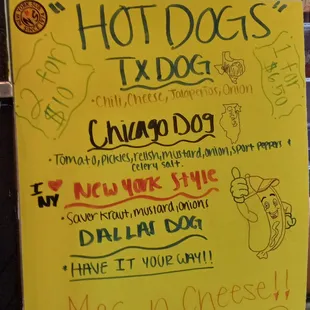 "HOT DOGS"
2 for
$10
1 for
$6.50
TX DOG
• Chili, Cheese, Jalapeños, Onion
Chicago Dog
• Tomato, Pickles, relish, mustard, onion, sport peppers &
celery salt.
I ♥
NY
NEW YORK STYLE
• Sauer Kraut, mustard, onions
DALLAS DOG
• HAVE IT YOUR WAY!!
Mac n Cheese!!